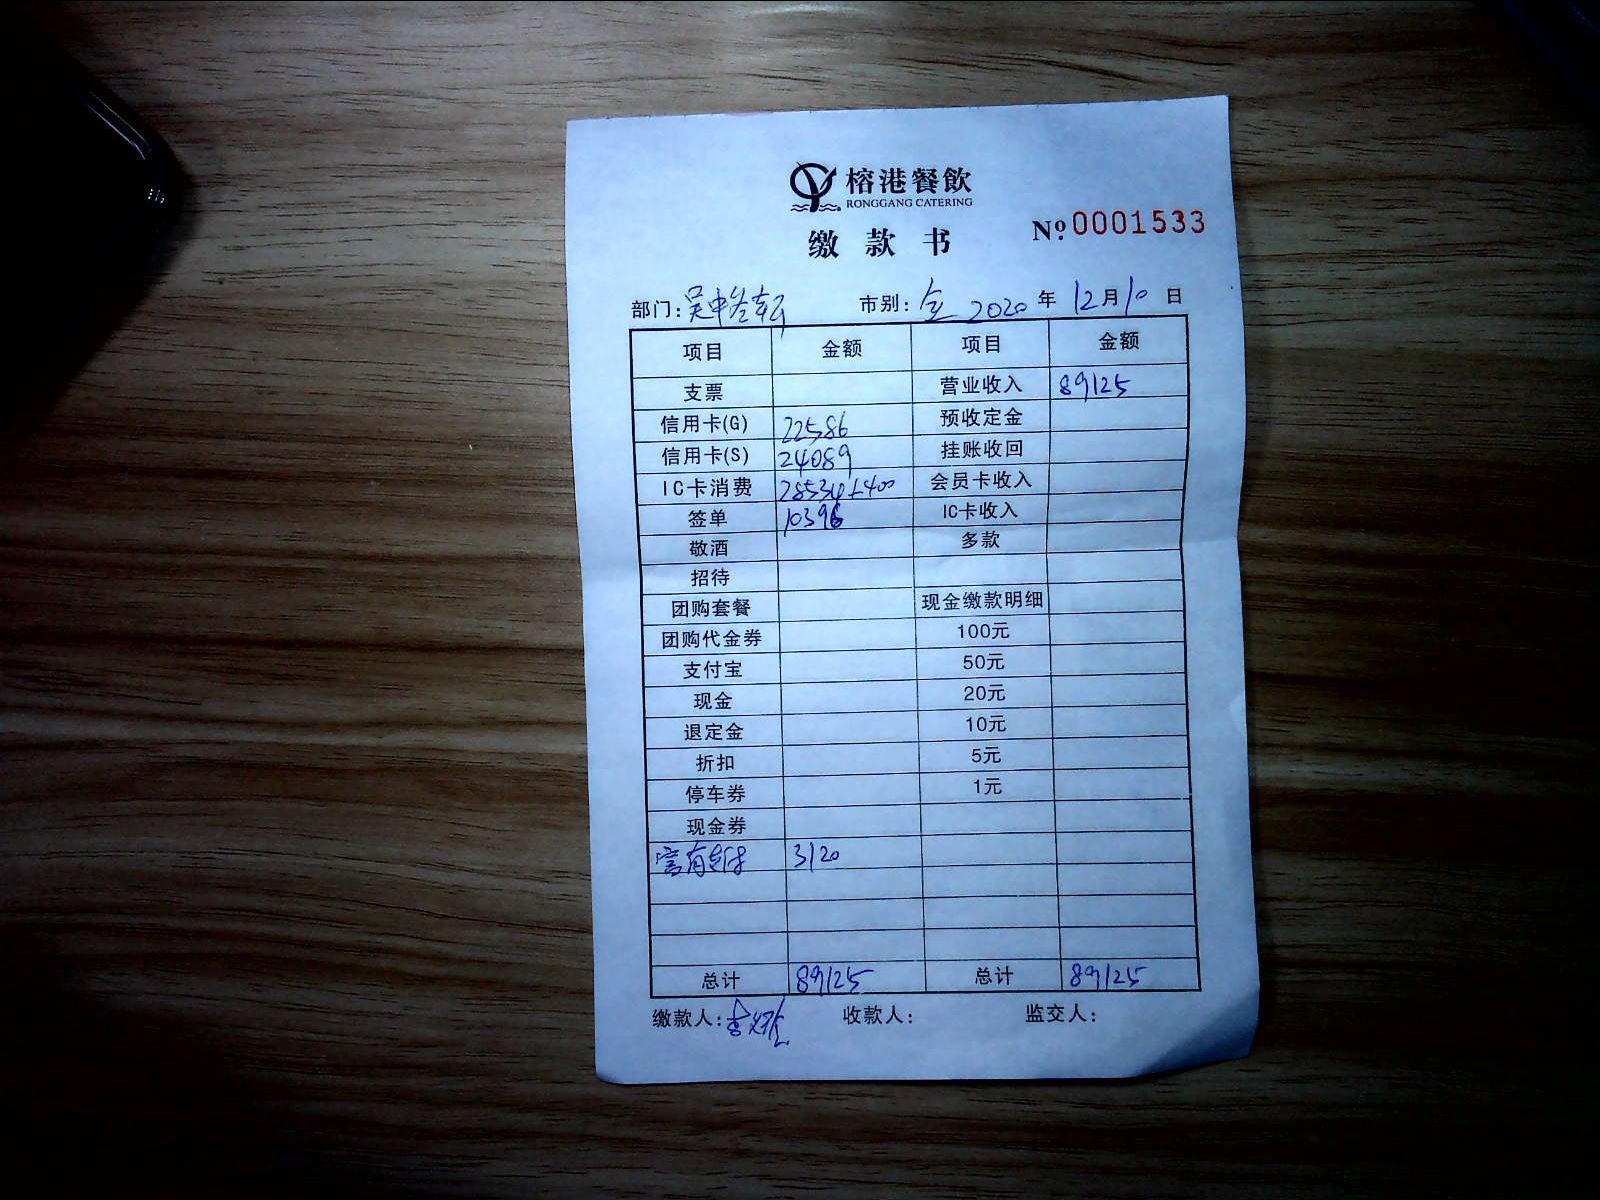 榕港餐飲
RONGGANG CATERING
缴款书 №0001533
部门: 吴中 市别: 全 2020年12月10日
项目 金额 项目 金额
支票 营业收入 89125
信用卡(G) 22586 预收定金
信用卡(S) 24089 挂账收回
IC卡消费 28534+400 会员卡收入
签单 10396 IC卡收入
敬酒 多款
招待
团购套餐 现金缴款明细
团购代金券 100元
支付宝 50元
现金 20元
退定金 10元
折扣 5元
停车券 1元
现金券
3120
总计 89125 总计 89125
缴款人: 收款人: 监交人: